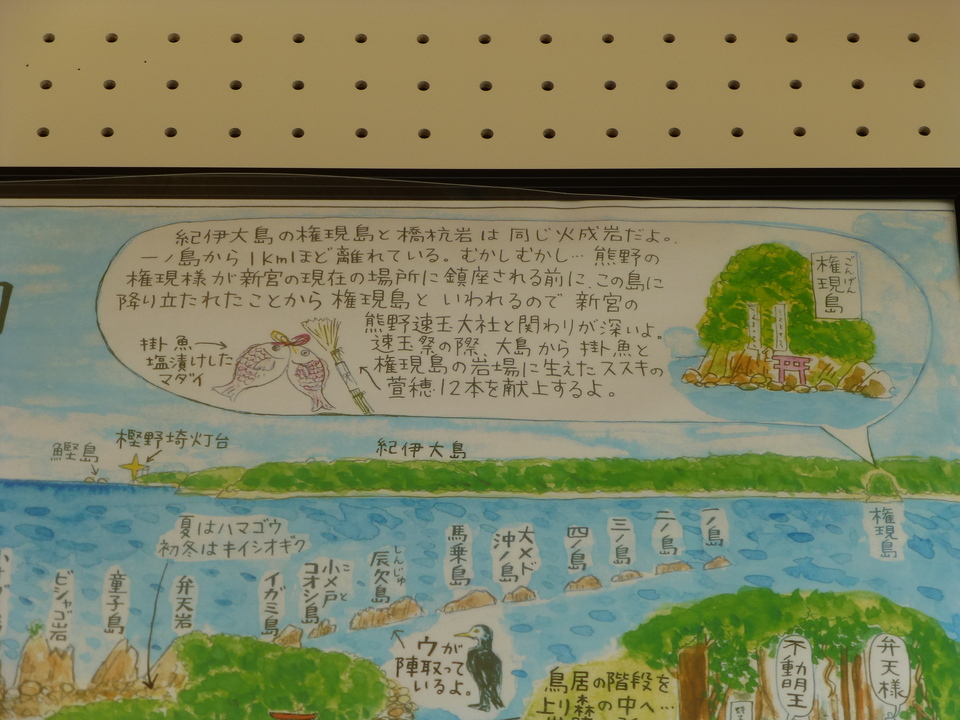 紀伊大島の権現島と橋杭岩は同じ火成岩だよ。
一ノ島から1kmほど離れている。むかしむかし… 熊野の
権現様が新宮の現在の場所に鎮座される前に、この島に
降り立たれたことから権現島といわれるので 新宮の
熊野速玉大社と関わりが深いよ。
速玉祭の際、大島から掛魚と
権現島の岩場に生えたススキの
萱穂12本を献上するよ。
掛魚→
塩漬けした
マダイ
ごんげん
権現島
鰹島
樫野埼灯台
紀伊大島
権現島
夏はハマゴウ
初冬はキイシオギク
ビシャゴ岩
童子島
弁天岩
イガミ島
コオシ島
小メ戸
こ と
辰欠島
しんじゅ
馬乗島
沖ノ島
大メド
四ノ島
三ノ島
二ノ島
一ノ島
ウが
陣取って
いるよ。
鳥居の階段を
上り森の中へ…
不動明王
弁天様